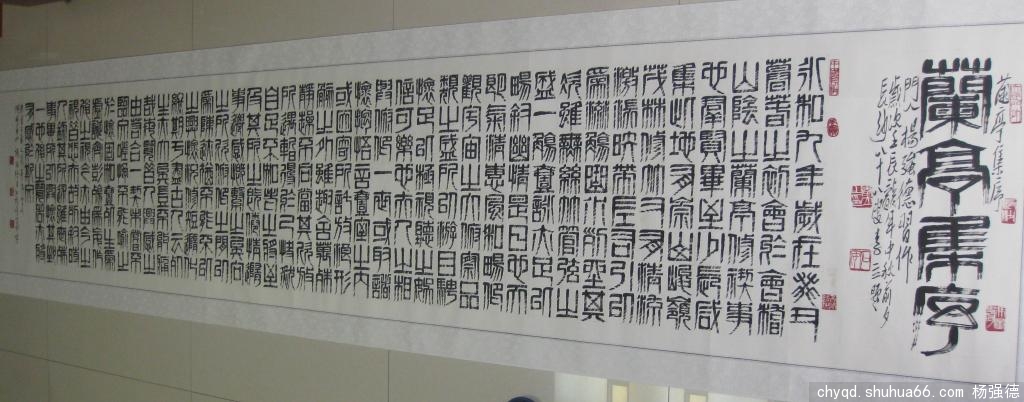 蘭亭集序
蘭亭集序
門人楊強德習作
永和九年歲在癸丑
暮春之初會於會稽
山陰之蘭亭修禊事
也羣賢畢至少長咸
集此地有崇山峻嶺
茂林修竹又有清流
激湍映帶左右引以
為流觴曲水列坐其
次雖無絲竹管弦之
盛一觴一詠亦足以
暢敘幽情是日也天
朗氣清惠風和暢仰
觀宇宙之大俯察品
類之盛所以游目騁
懷足以極視聽之娛
信可樂也夫人之相
與俯仰一世或取諸
懷抱悟言一室之內
或因寄所託放浪形
骸之外雖趣舍萬殊
靜躁不同當其欣於
所遇暫得於己快然
自足不知老之將至
及其所之既倦情隨
事遷感慨係之矣向
之所欣俯仰之間已
為陳跡猶不能不以
之興懷況修短隨化
終期於盡古人云死
生亦大矣豈不痛
哉每覽昔人興感之
由若合一契未嘗不
臨文嗟悼不能喻之
於懷固知一死生為
虛誕齊彭殤為妄作
後之視今亦猶今之
視昔悲夫故列敘時
人錄其所述雖世殊
事異所以興懷其致
一也後之覽者亦將
有感於斯文
chyqd.shuhua66.com 杨强德